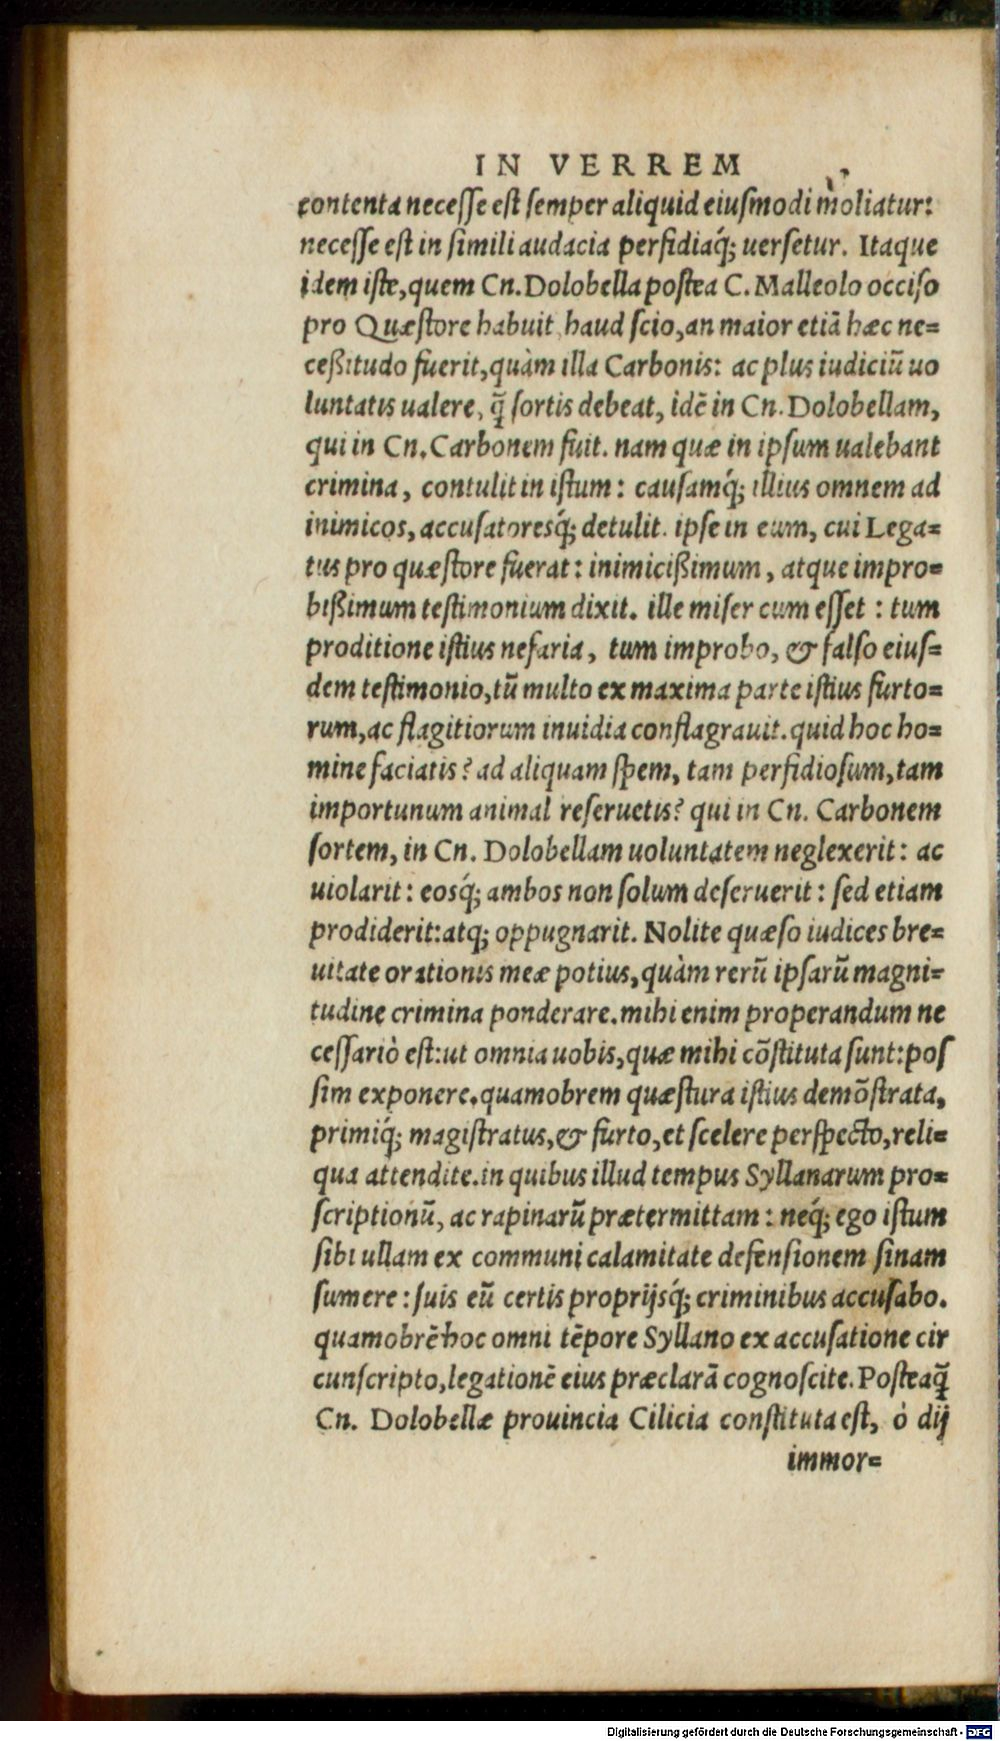 IN VERREM
contenta necesse est semper aliquid eiusmodi moliatur:
necesse est in simili audacia perfidiaq́; uersetur. Itaque
idem iste, quem Cn. Dolobella postea C. Malleolo occiso
pro Quæstore habuit, haud scio, an maior etiā hæc ne=
ceßitudo fuerit, quàm illa Carbonis: ac plus iudiciū uo
luntatis ualere, q̄ sortis debeat, idē in Cn. Dolobellam,
qui in Cn. Carbonem fuit. nam quæ in ipsum ualebant
crimina, contulit in istum: causamq́; illius omnem ad
inimicos, accusatoresq́; detulit. ipse in eum, cui Lega=
tus pro quæstore fuerat: inimicißimum, atque impro=
bißimum testimonium dixit. ille miser cum esset: tum
proditione istius nefaria, tum improbo, & falso eius=
dem testimonio, tū multo ex maxima parte istius furto=
rum, ac flagitiorum inuidia conflagrauit. quid hoc ho=
mine faciatis? ad aliquam spem, tam perfidiosum, tam
importunum animal reseruetis? qui in Cn. Carbonem
sortem, in Cn. Dolobellam uoluntatem neglexerit: ac
uiolarit: eosq́; ambos non solum deseruerit: sed etiam
prodiderit: atq; oppugnarit. Nolite quæso iudices bre=
uitate orationis meæ potius, quàm rerū ipsarū magni=
tudine crimina ponderare. mihi enim properandum ne
cessariò est: ut omnia uobis, quæ mihi cōstituta sunt: pos
sim exponere. quamobrem quæstura istius demōstrata,
primiq́; magistratus, & furto, et scelere perspecto, reli=
qua attendite. in quibus illud tempus Syllanarum pro=
scriptionū, ac rapinarū prætermittam: neq́; ego istum
sibi ullam ex communi calamitate defensionem sinam
sumere: suis eū certis proprijsq́; criminibus accusabo.
quamobrē hoc omni tēpore Syllano ex accusatione cir
cunscripto, legationē eius præclarā cognoscite. Posteaq̄
Cn. Dolobellæ prouincia Cilicia constituta est, ò dij
immor=
Digitalisierung gefördert durch die Deutsche Forschungsgemeinschaft - DFG